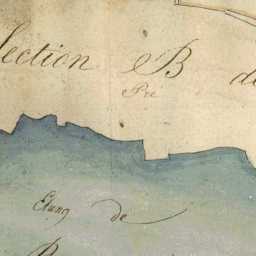 Section B de
Pré
Etang de